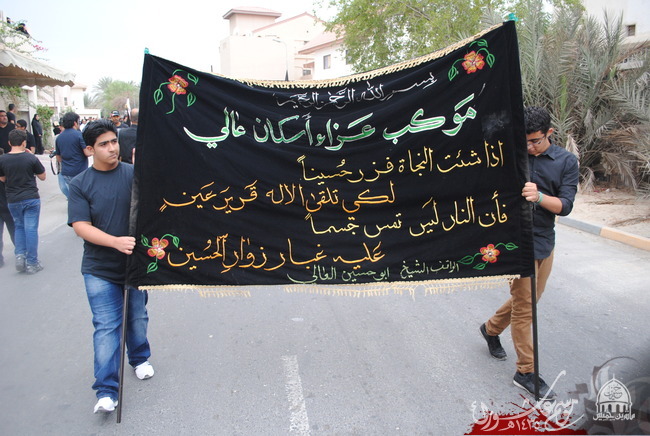 بسم الله الرحمن الرحيم
مَوكب عزاء أسكان عالي
اذا شئت النجاة فزر حُسيناً
لكي تلقى الاله قرير عَينٍ
فأن النار ليسَ تمس جسماً
عليه غبار زوار الحُسين
الواقف الشيخ ابو حسين العالي